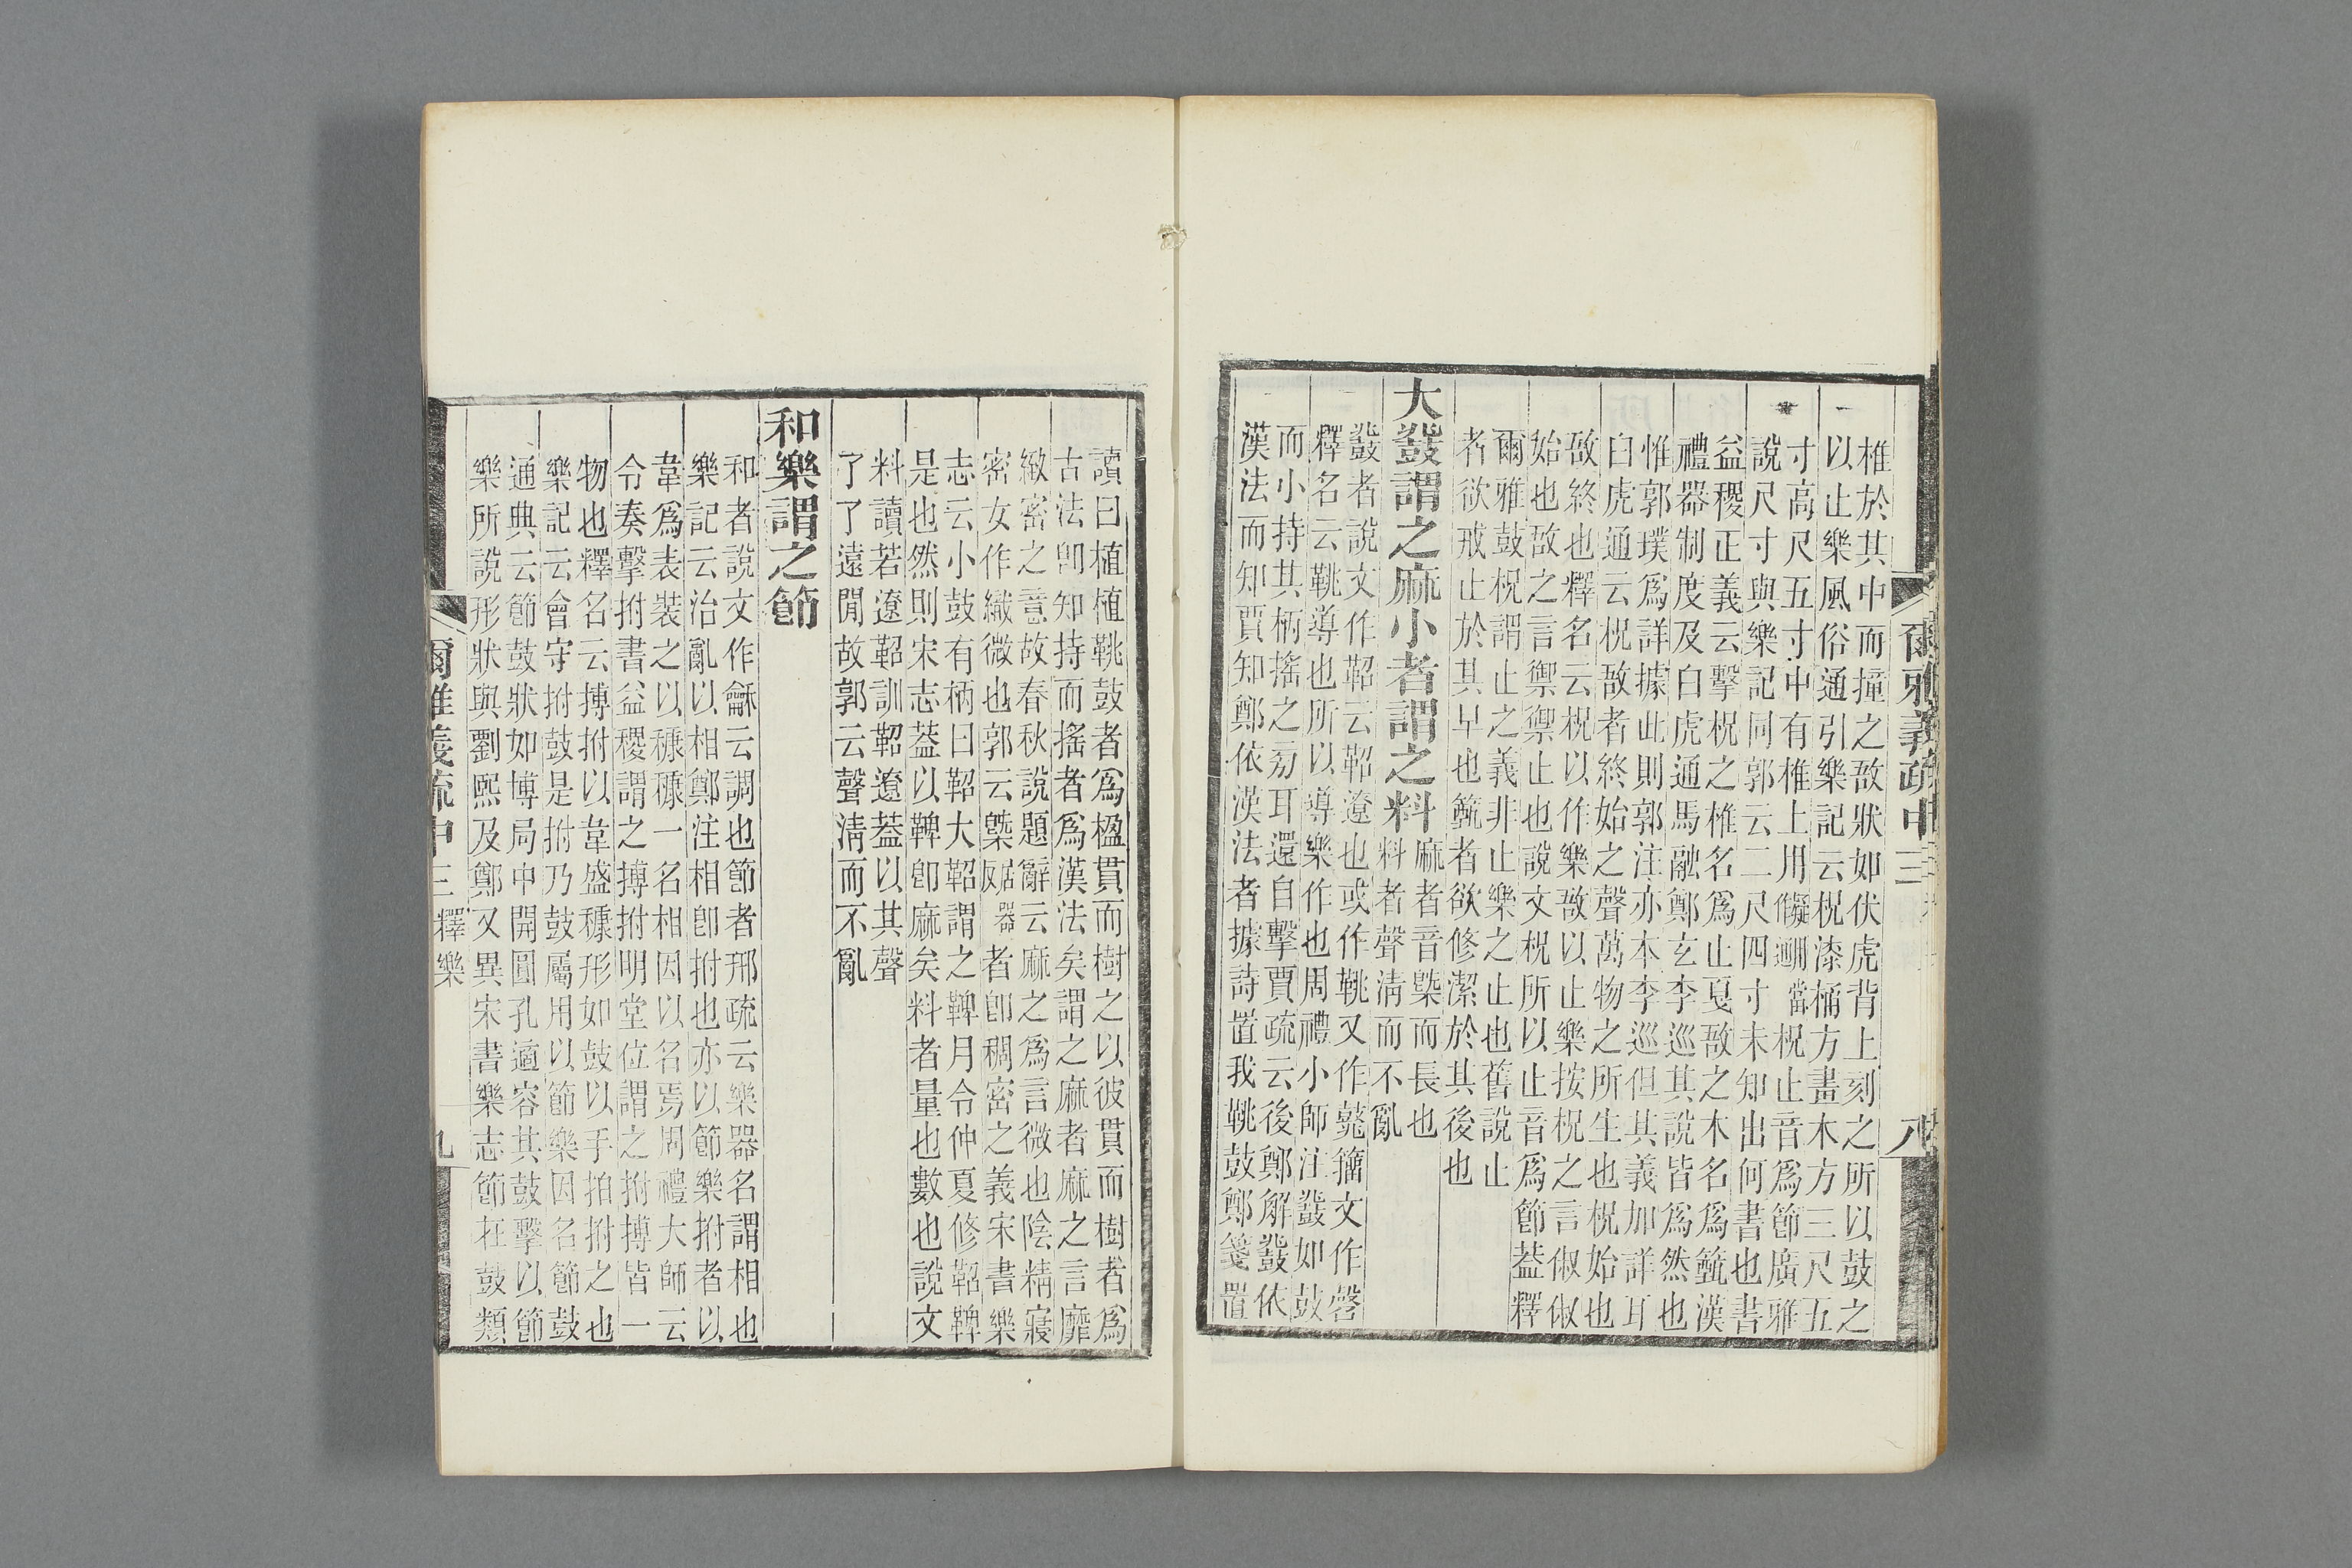 爾雅義疏中三
八
椎於其中而撞之敔狀如伏虎背上刻之所以鼓之
以止樂風俗通引樂記云柷漆桶方畫木方三尺五
寸高尺五寸中有椎上用柷止音爲節廣雅
說尺寸與樂記同郭云二尺四寸未知出何書也書
益稷正義云擊柷之椎名爲止戛敔之木名爲籈漢
禮器制度及白虎通馬融鄭玄李巡其說皆爲然也
惟郭璞爲詳據此則郭注亦本李巡但其義加詳耳
白虎通云柷敔者終始之聲萬物之所生也柷始也
敔終也釋名云柷以作樂敔以止樂按柷之言俶俶
始也敔之言禦禦止也說文柷所以止音爲節蓋釋
爾雅鼓柷謂止之義非止樂之止也舊說止
者欲戒止於其早也籈者欲修潔於其後也
大鼗謂之麻小者謂之料
麻者音槩而長也
料者聲清而不亂
鼗者說文作鞀云鞀遼也或作鞉又作鼗籒文作磬
釋名云鞉導也所以導樂作也周禮小師注鼗如鼓
而小持其柄搖之旁耳還自擊賈疏云後鄭解鼗依
漢法而知賈知鄭依漢法者據詩置我鞉鼓鄭箋置
讀曰植植鞉鼓者爲楹貫而樹之以彼貫而樹者爲
古法卽知持而搖者爲漢法矣謂之麻者麻之言靡
緻密之意故春秋說題辭云麻之爲言微也陰精寢
密女作纖微也郭云槩者卽稠密之義宋書樂
志云小鼓有柄曰鞀大鞀謂之鞞月令仲夏修鞀鞞
是也然則宋志蓋以鞞卽麻矣料者量也數也說文
料讀若遼鞀訓鞀遼蓋以其聲
了了遠聞故郭云聲清而不亂
和樂謂之節
和者說文作龢云調也節者邢疏云樂器名謂相也
樂記云治亂以相鄭注相卽拊也亦以節樂拊者以
韋爲表裝之以穅穅一名相因以名焉周禮大師云
令奏擊拊書益稷謂之搏拊明堂位謂之拊搏皆一
物也釋名云搏拊以韋盛穅形如鼓以手拍拊之也
樂記云會守拊鼓是拊乃鼓屬用以節樂因名節鼓
通典云節鼓狀如博局中開圓孔適容其鼓擊以節
樂所說形狀與劉熙及鄭又異宋書樂志節在鼓類
爾雅義疏中三 釋樂
九